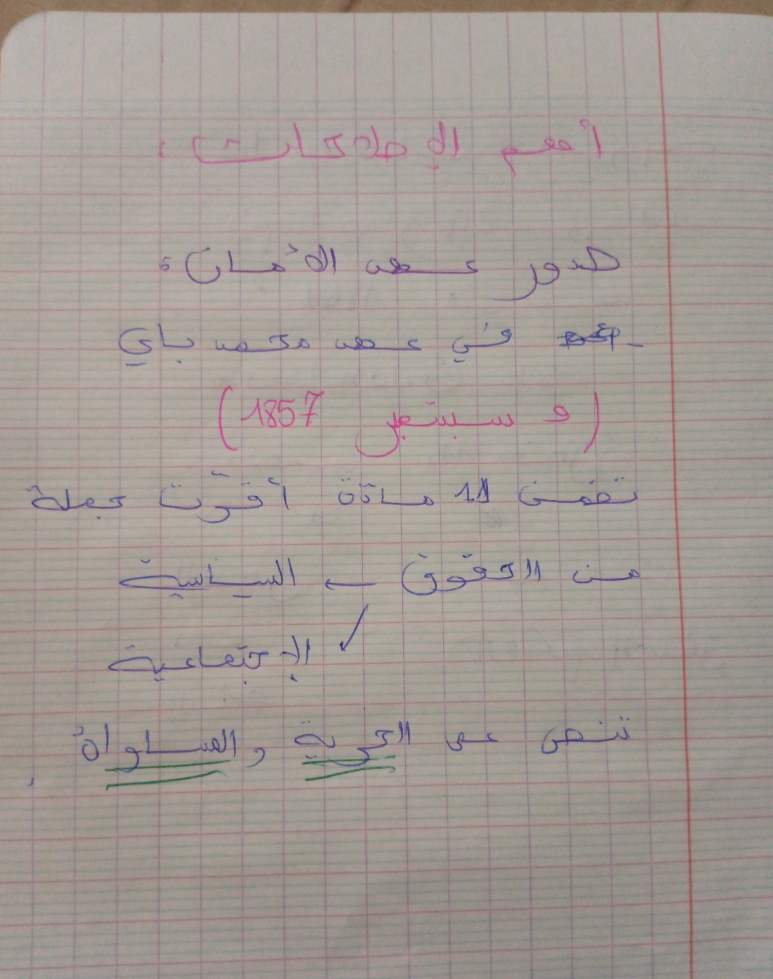 أهم الإصلاحات :
صدور عهد الأمان :
- في عهد محمد باي
(9 سبتمبر 1857)
تضمن 11 مادة أقرّت جملة
من الحقوق ← السياسية
↙ الإجتماعية
تنص على الحرية و المساواة .